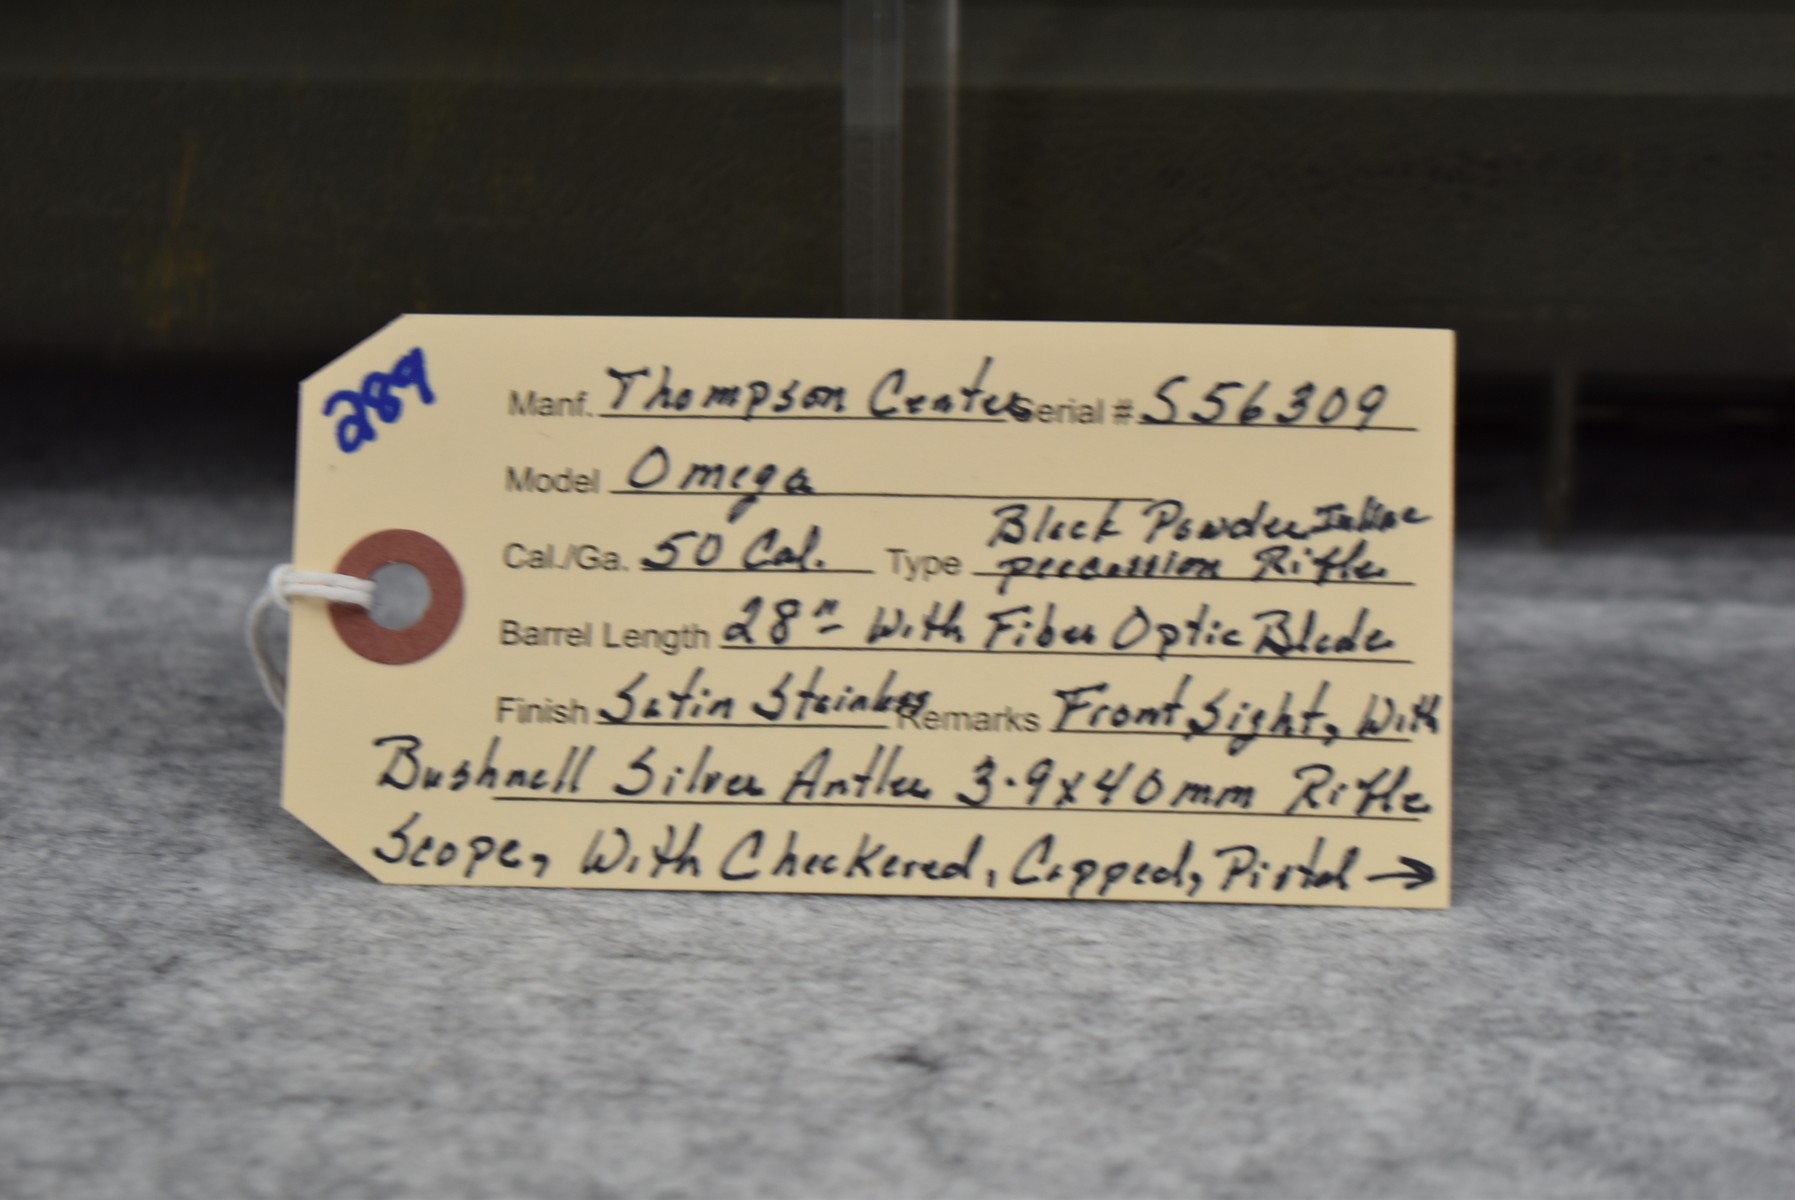 289
Manf. Thompson Center Serial # S56309
Model Omega
Cal./Ga. 50 Cal. Type Black Powder Inline
percussion Rifle
Barrel Length 28" With Fiber Optic Blade
Finish Satin Stainless Remarks Front Sight, With
Bushnell Silver Antler 3-9x40mm Rifle
Scope, With Checkered, Capped, Pistol →